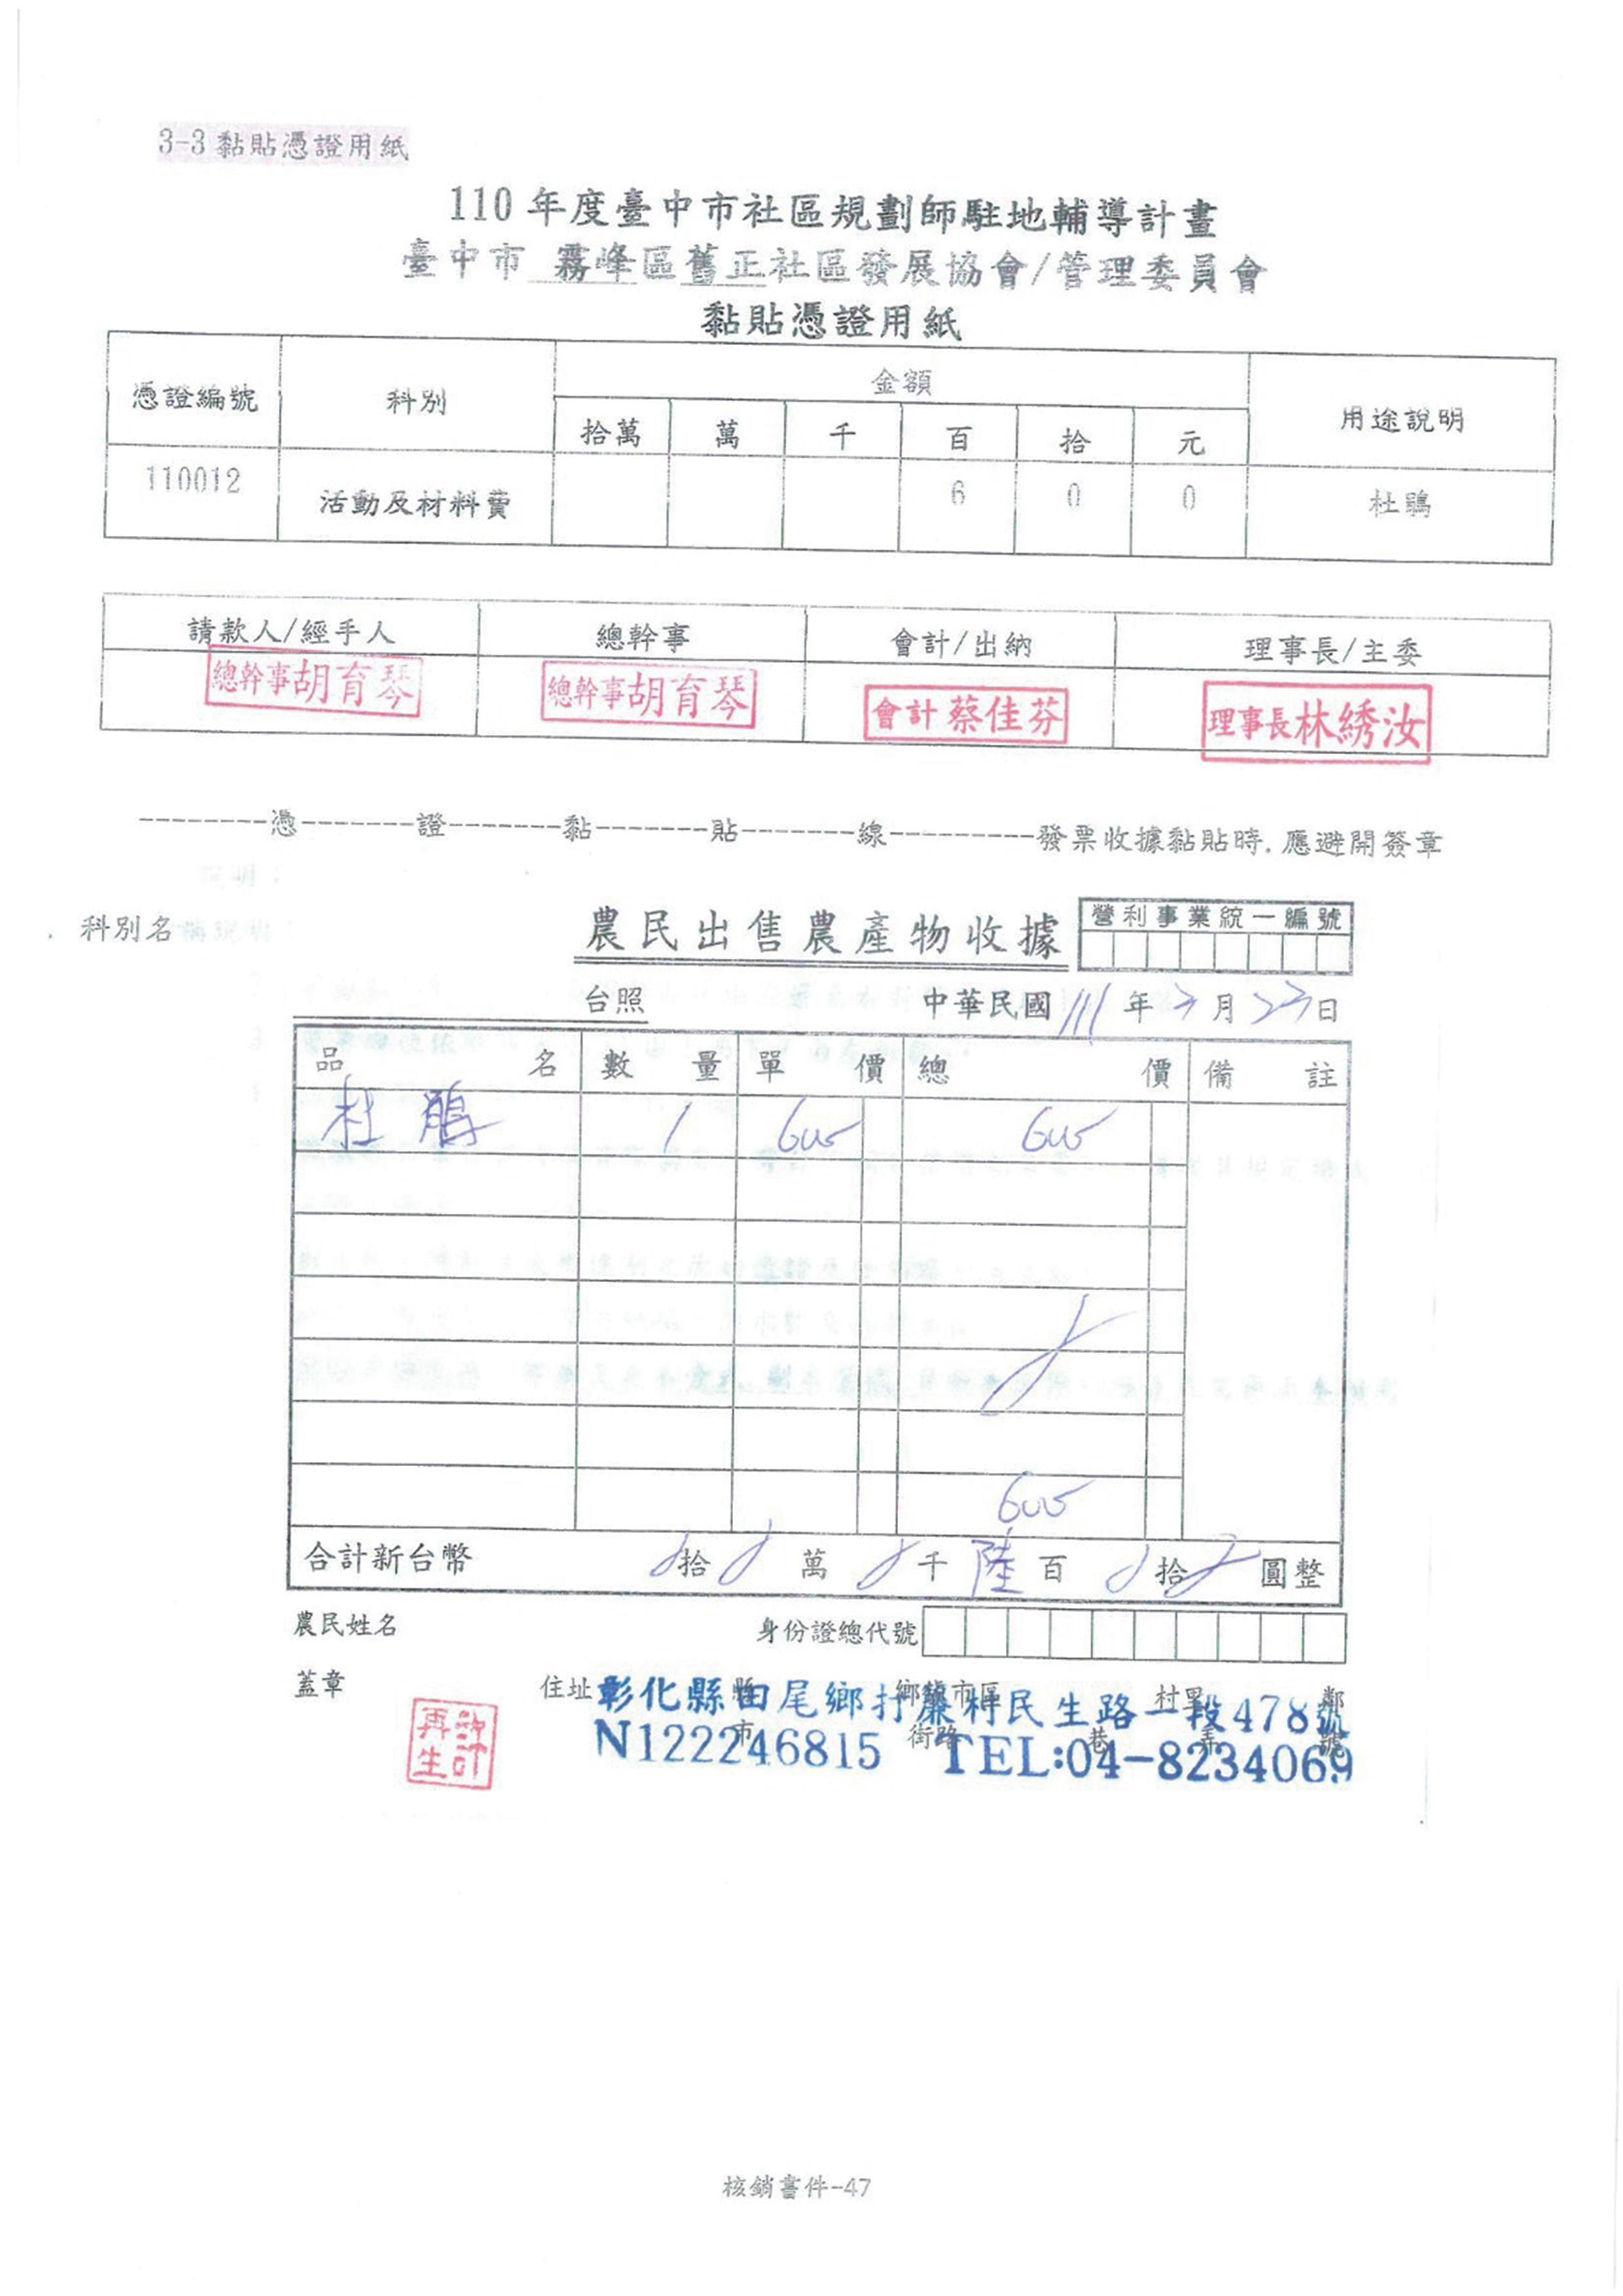 3-3 黏貼憑證用紙
110 年度臺中市社區規劃師駐地輔導計畫
臺中市 霧峰區舊正社區發展協會/管理委員會
黏貼憑證用紙
憑證編號 科別 金額 用途說明
拾萬 萬 千 百 拾 元
110012 活動及材料費 6 0 0 杜鵑
請款人/經手人 總幹事 會計/出納 理事長/主委
總幹事胡育琴 總幹事胡育琴 會計蔡佳芬 理事長林綉汝
--------憑-------證-------黏-------貼-------線---------發票收據黏貼時,應避開簽章
說明：
科別名稱說明
農民出售農產物收據 營利事業統一編號
台照 中華民國 111 年 3 月 23 日
品名 數量 單價 總價 備註
杜鵑 1 600 600
600
合計新台幣 拾 萬 千 陸 百 拾 圓整
農民姓名 身份證總代號
蓋章 住址 縣市 鄉鎮市區 村里 鄰
街路 巷 弄 號
彰化縣田尾鄉打簾村民生路一段478號
N122246815 TEL:04-8234069
許再生
核銷書件-47